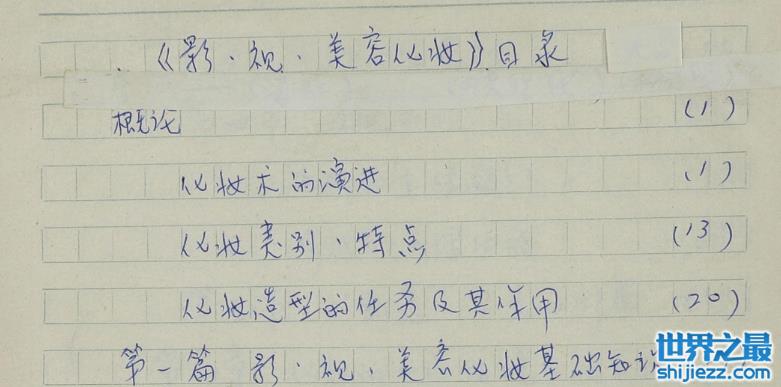 《影·视·美容化妆》目录
概论 (1)
化妆术的演进 (1)
化妆类别、特点 (13)
化妆造型的任务及其作用 (20)
第一篇 影·视·美容化妆基础知识
世界之最
shijiezz.com